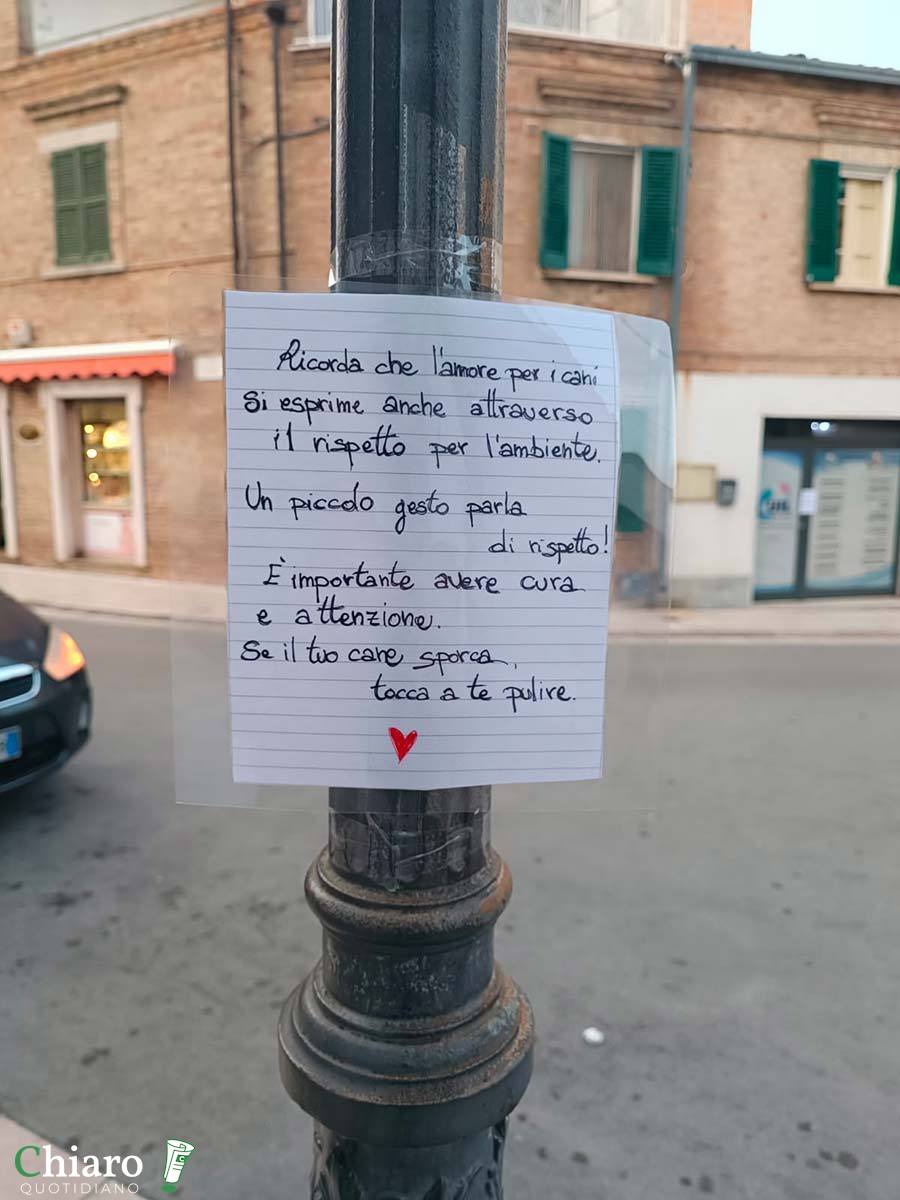 Ricorda che l'amore per i cani
si esprime anche attraverso
il rispetto per l'ambiente.
Un piccolo gesto parla
di rispetto!
È importante avere cura
e attenzione.
Se il tuo cane sporca,
tocca a te pulire.
Chiaro
QUOTIDIANO